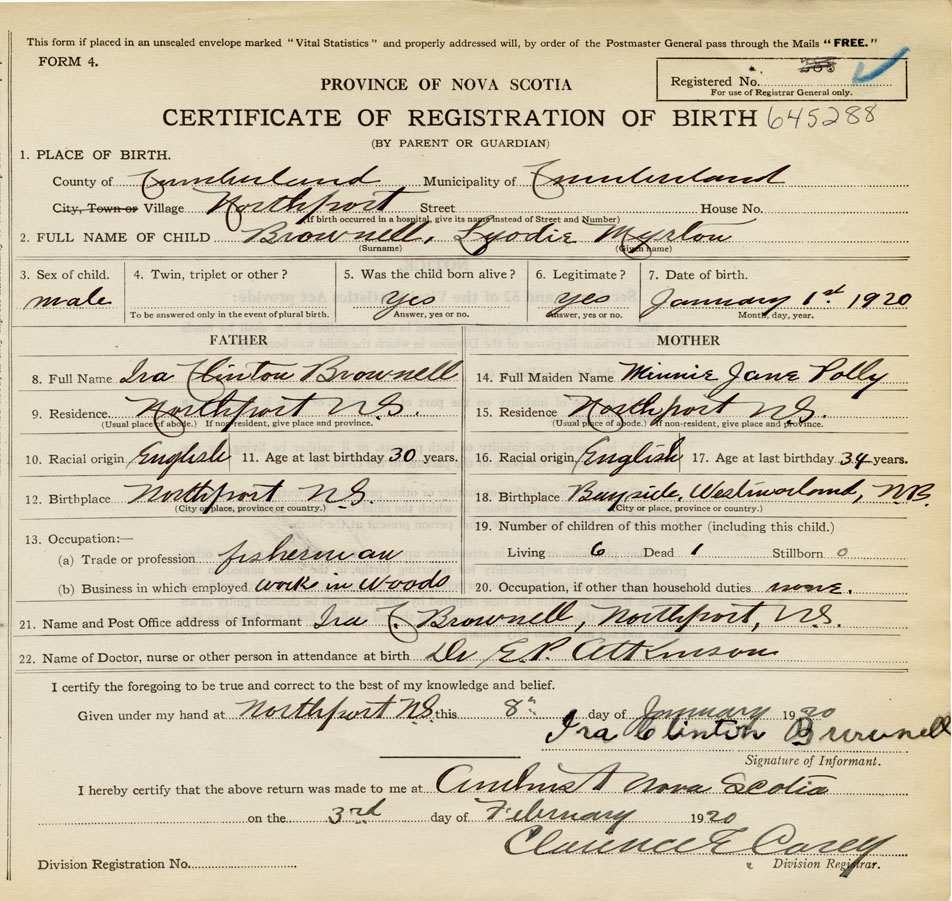 This form if placed in an unsealed envelope marked "Vital Statistics" and properly addressed will, by order of the Postmaster General pass through the Mails "FREE."
FORM 4.
Registered No.
For use of Registrar General only.
PROVINCE OF NOVA SCOTIA
CERTIFICATE OF REGISTRATION OF BIRTH 645288
(BY PARENT OR GUARDIAN)
1. PLACE OF BIRTH.
County of Cumberland Municipality of Cumberland
City, Town or Village Northport Street House No.
(If birth occurred in a hospital, give its name instead of Street and Number)
2. FULL NAME OF CHILD Brownell, Lyodie Myrlon
(Surname) (Given name)
3. Sex of child. 4. Twin, triplet or other? 5. Was the child born alive? 6. Legitimate? 7. Date of birth.
male Yes Yes January 1st 1920
To be answered only in the event of plural birth. Answer, yes or no. Answer, yes or no. Month, day, year.
FATHER MOTHER
8. Full Name Ira Clinton Brownell 14. Full Maiden Name Minnie Jane Polly
9. Residence Northport N.S. 15. Residence Northport N.S.
(Usual place of abode.) If non-resident, give place and province. (Usual place of abode.) If non-resident, give place and province.
10. Racial origin English 11. Age at last birthday 30 years. 16. Racial origin English 17. Age at last birthday 34 years.
12. Birthplace Northport N.S. 18. Birthplace Bayside, Westmorland, N.B.
(City or place, province or country.) (City or place, province or country.)
13. Occupation:— 19. Number of children of this mother (including this child.)
(a) Trade or profession fisherman Living 6 Dead 1 Stillborn 0
(b) Business in which employed work in Woods 20. Occupation, if other than household duties none.
21. Name and Post Office address of Informant Ira C. Brownell, Northport, N.S.
22. Name of Doctor, nurse or other person in attendance at birth Dr E.P. Atkinson
I certify the foregoing to be true and correct to the best of my knowledge and belief.
Given under my hand at Northport N.S. this 8th day of January 1920
Ira Clinton Brownell
Signature of Informant.
I hereby certify that the above return was made to me at Amherst Nova Scotia
on the 3rd day of February 1920
Clarence E Casey
Division Registration No. Division Registrar.